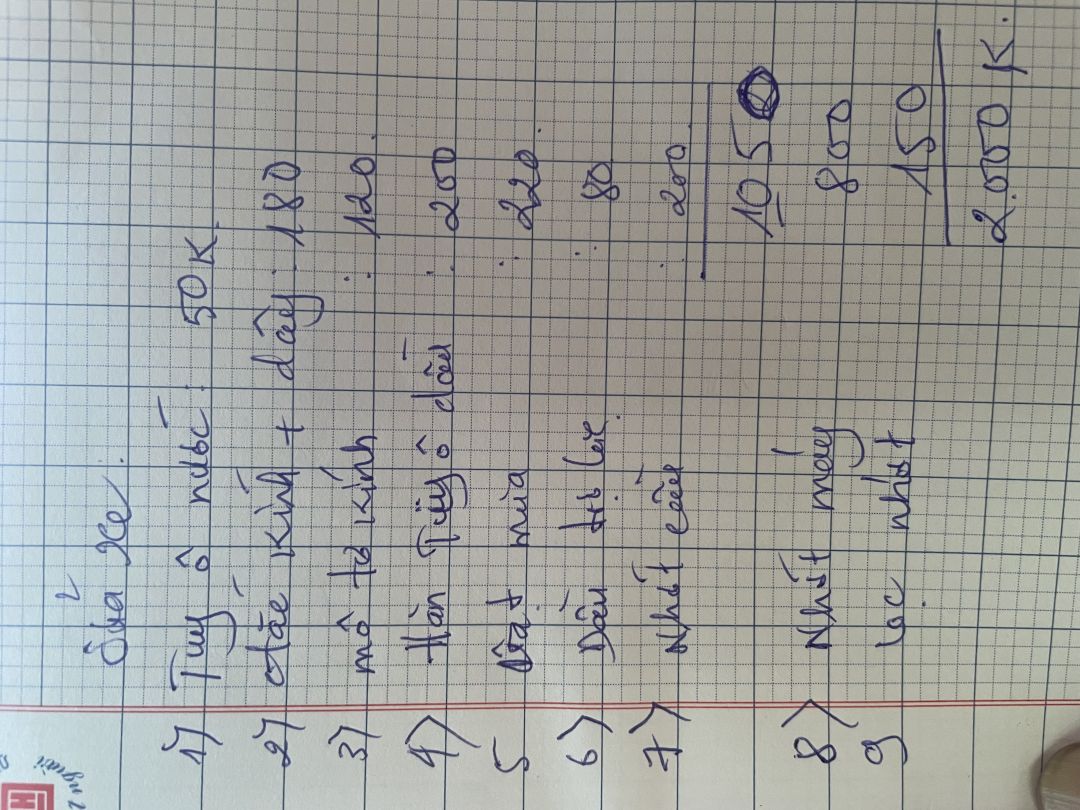 Sửa xe.
1) Tuy ô nước : 50K.
2) Giắc kính + dây : 180
3) mô tơ kính : 120.
4) Hàn Tuy ô dầu : 200
5 Gạt mưa : 220.
6) Dầu trợ lực. : 80
7) Nhớt cầu : 200.
1050
8) Nhớt máy 800
9 lọc nhớt 150
2.000 K.